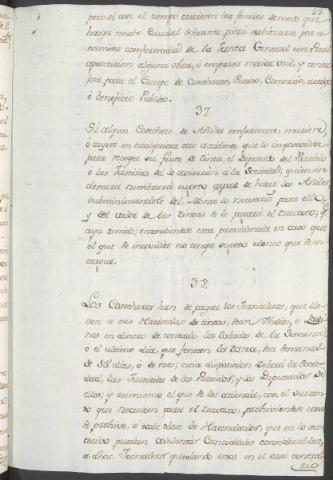 43.
pero si con el tiempo crecieren los fondos de modo que
haya mucho Caudal sobrante podrá destinarse por u-
nanime conformidad de la Junta General con Real
aprovacion alguna obra, ó empresa maior útil y venta-
josa para el Cuerpo de Cosecheros, Puerto, Comercio,
ó beneficio Publico.
37.
Si algun Cosechero de Añiles enfermare, muriere
ó cayere en cualquiera otro accidente que lo imposivilite
para recoger su fruto de tinta, el Diputado del Partido
ó las Justicias de lo avisarán a la Sociedad, quien sin
demora nombrará sugeto capaz de hacer los Añiles
subministrandole del Monte lo necesario para ello,
y del valor de las tintas se le pagará el trabajo, q.
haya tenido; entendiendose esta providencia en caso que
el que se inavilite no tenga sugeto idoneo que lo en-
cargue.
38.
Los Cosecheros han de pagar los Jornaleros, que lle-
ven a sus Haciendas de tintas, sean Yndios, ó Ladi-
nos en dinero de contado, los Sábados de la Semana
ó el ultimo dia, que fenecen la tarea, sea semanal
de 15 dias, ó de mes; cuia disposicion zelará la Socie-
dad, las Justicias de los Partidos, y los Diputados de
ellos, y asimismo el que se les asista, con el susten-
to que necesiten para el trabajo, prohiviendose como
se prohive, a cada clase de Hacendados, que en lo su-
cesivo puedan adelantar Cantidades considerables,
a dhos Jornaleros quedando estas en el caso contra-
rio